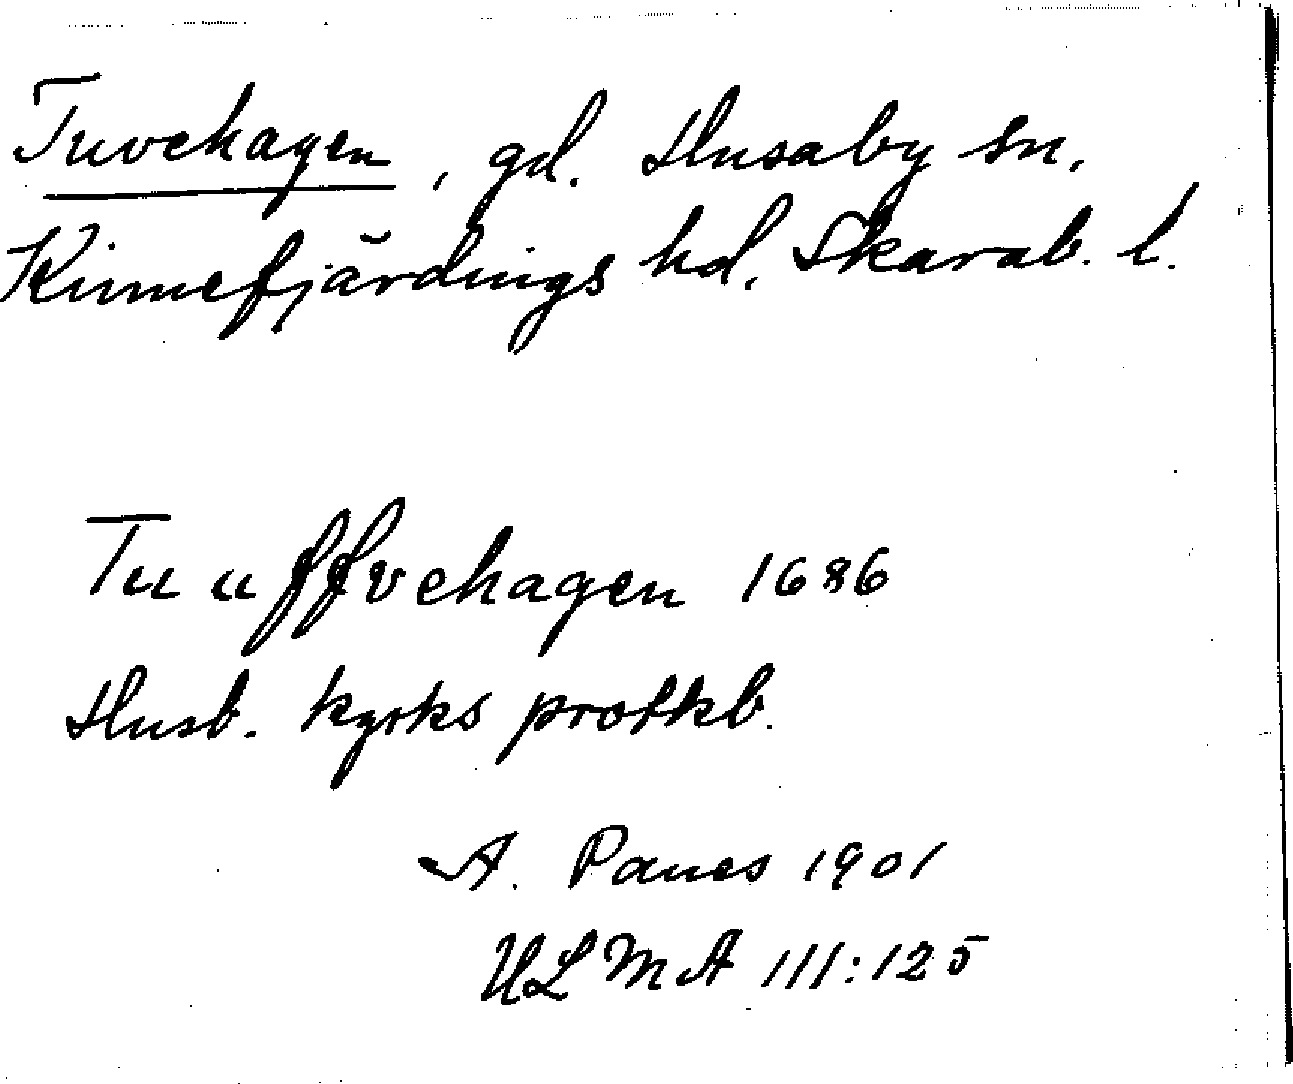 Tuvehagen, gd. Husaby sn.
Kinnefjärdings hd. Skarab. l.
Tuuffvehagen 1686
Husb. kyrks protkb.
A. Palnes 1901
ULMA 111:125